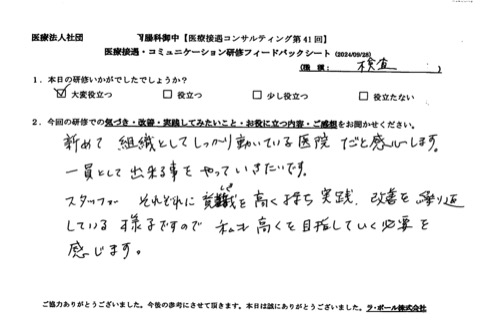 医療法人社団 胃腸科御中【医療接遇コンサルティング第41回】
医療接遇・コミュニケーション研修フィードバックシート (2024/09/28)
(職種: 検査 )
1．本日の研修いかがでしたでしょうか？
☑ 大変役立つ □ 役立つ □ 少し役立つ □ 役立たない
2．今回の研修での気づき・改善・実践してみたいこと・お役に立つ内容・ご感想をお聞かせください。
改めて 組織としてしっかり動いている医院 だと感じます。
一員として出来る事を やっていきたいです。
スタッフが それぞれに 意識を高く持ち 実践、改善を繰り返
している 様子ですので 私も 高くを目指していく必要を
感じます。
ご協力ありがとうございました。今後の参考にさせて頂きます。本日は誠にありがとうございました。ラ・ポール株式会社